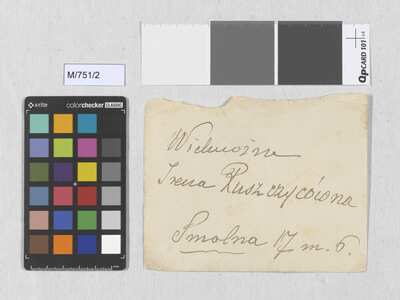 M/751/2
QPCARD 101
x-rite
colorchecker CLASSIC
Wielmożna
Irena Ruszczycówna
Smolna 17 m. 6.